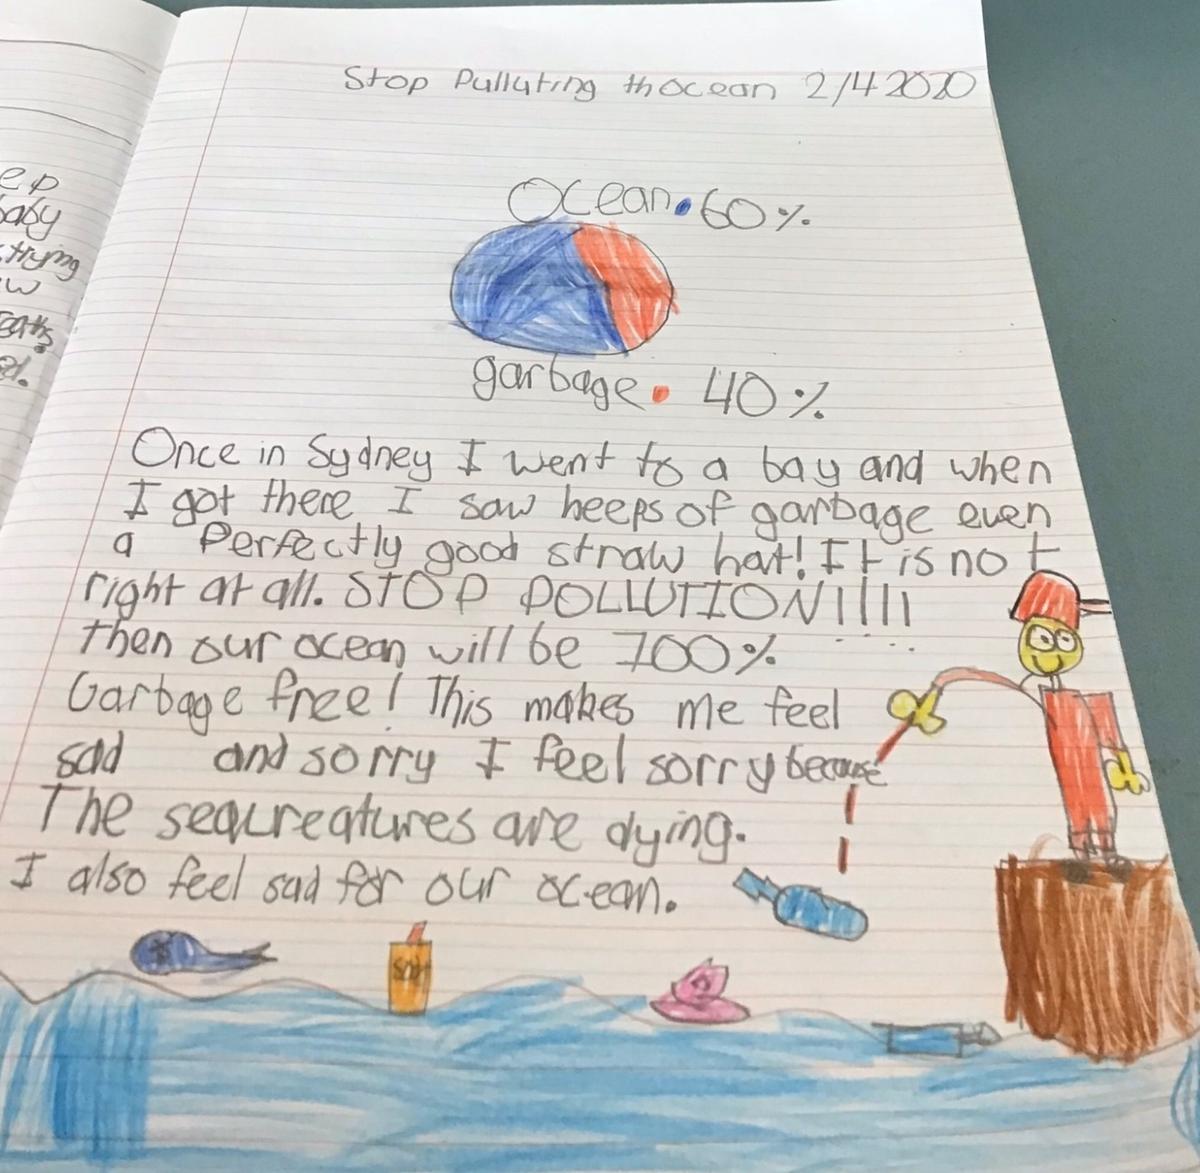 Stop Pulluting thocean 2/4 2020
Ocean. 60%
garbage. 40%
Once in Sydney I went to a bay and when
I got there I saw heeps of garbage even
a Perfectly good straw hat! It is not
right at all. STOP POLLUTION!!!!
then our ocean will be 100%
Garbage free! This makes me feel
sad and sorry I feel sorry because
The seacreatures are dying.
I also feel sad for our ocean.
ep
baby
trying